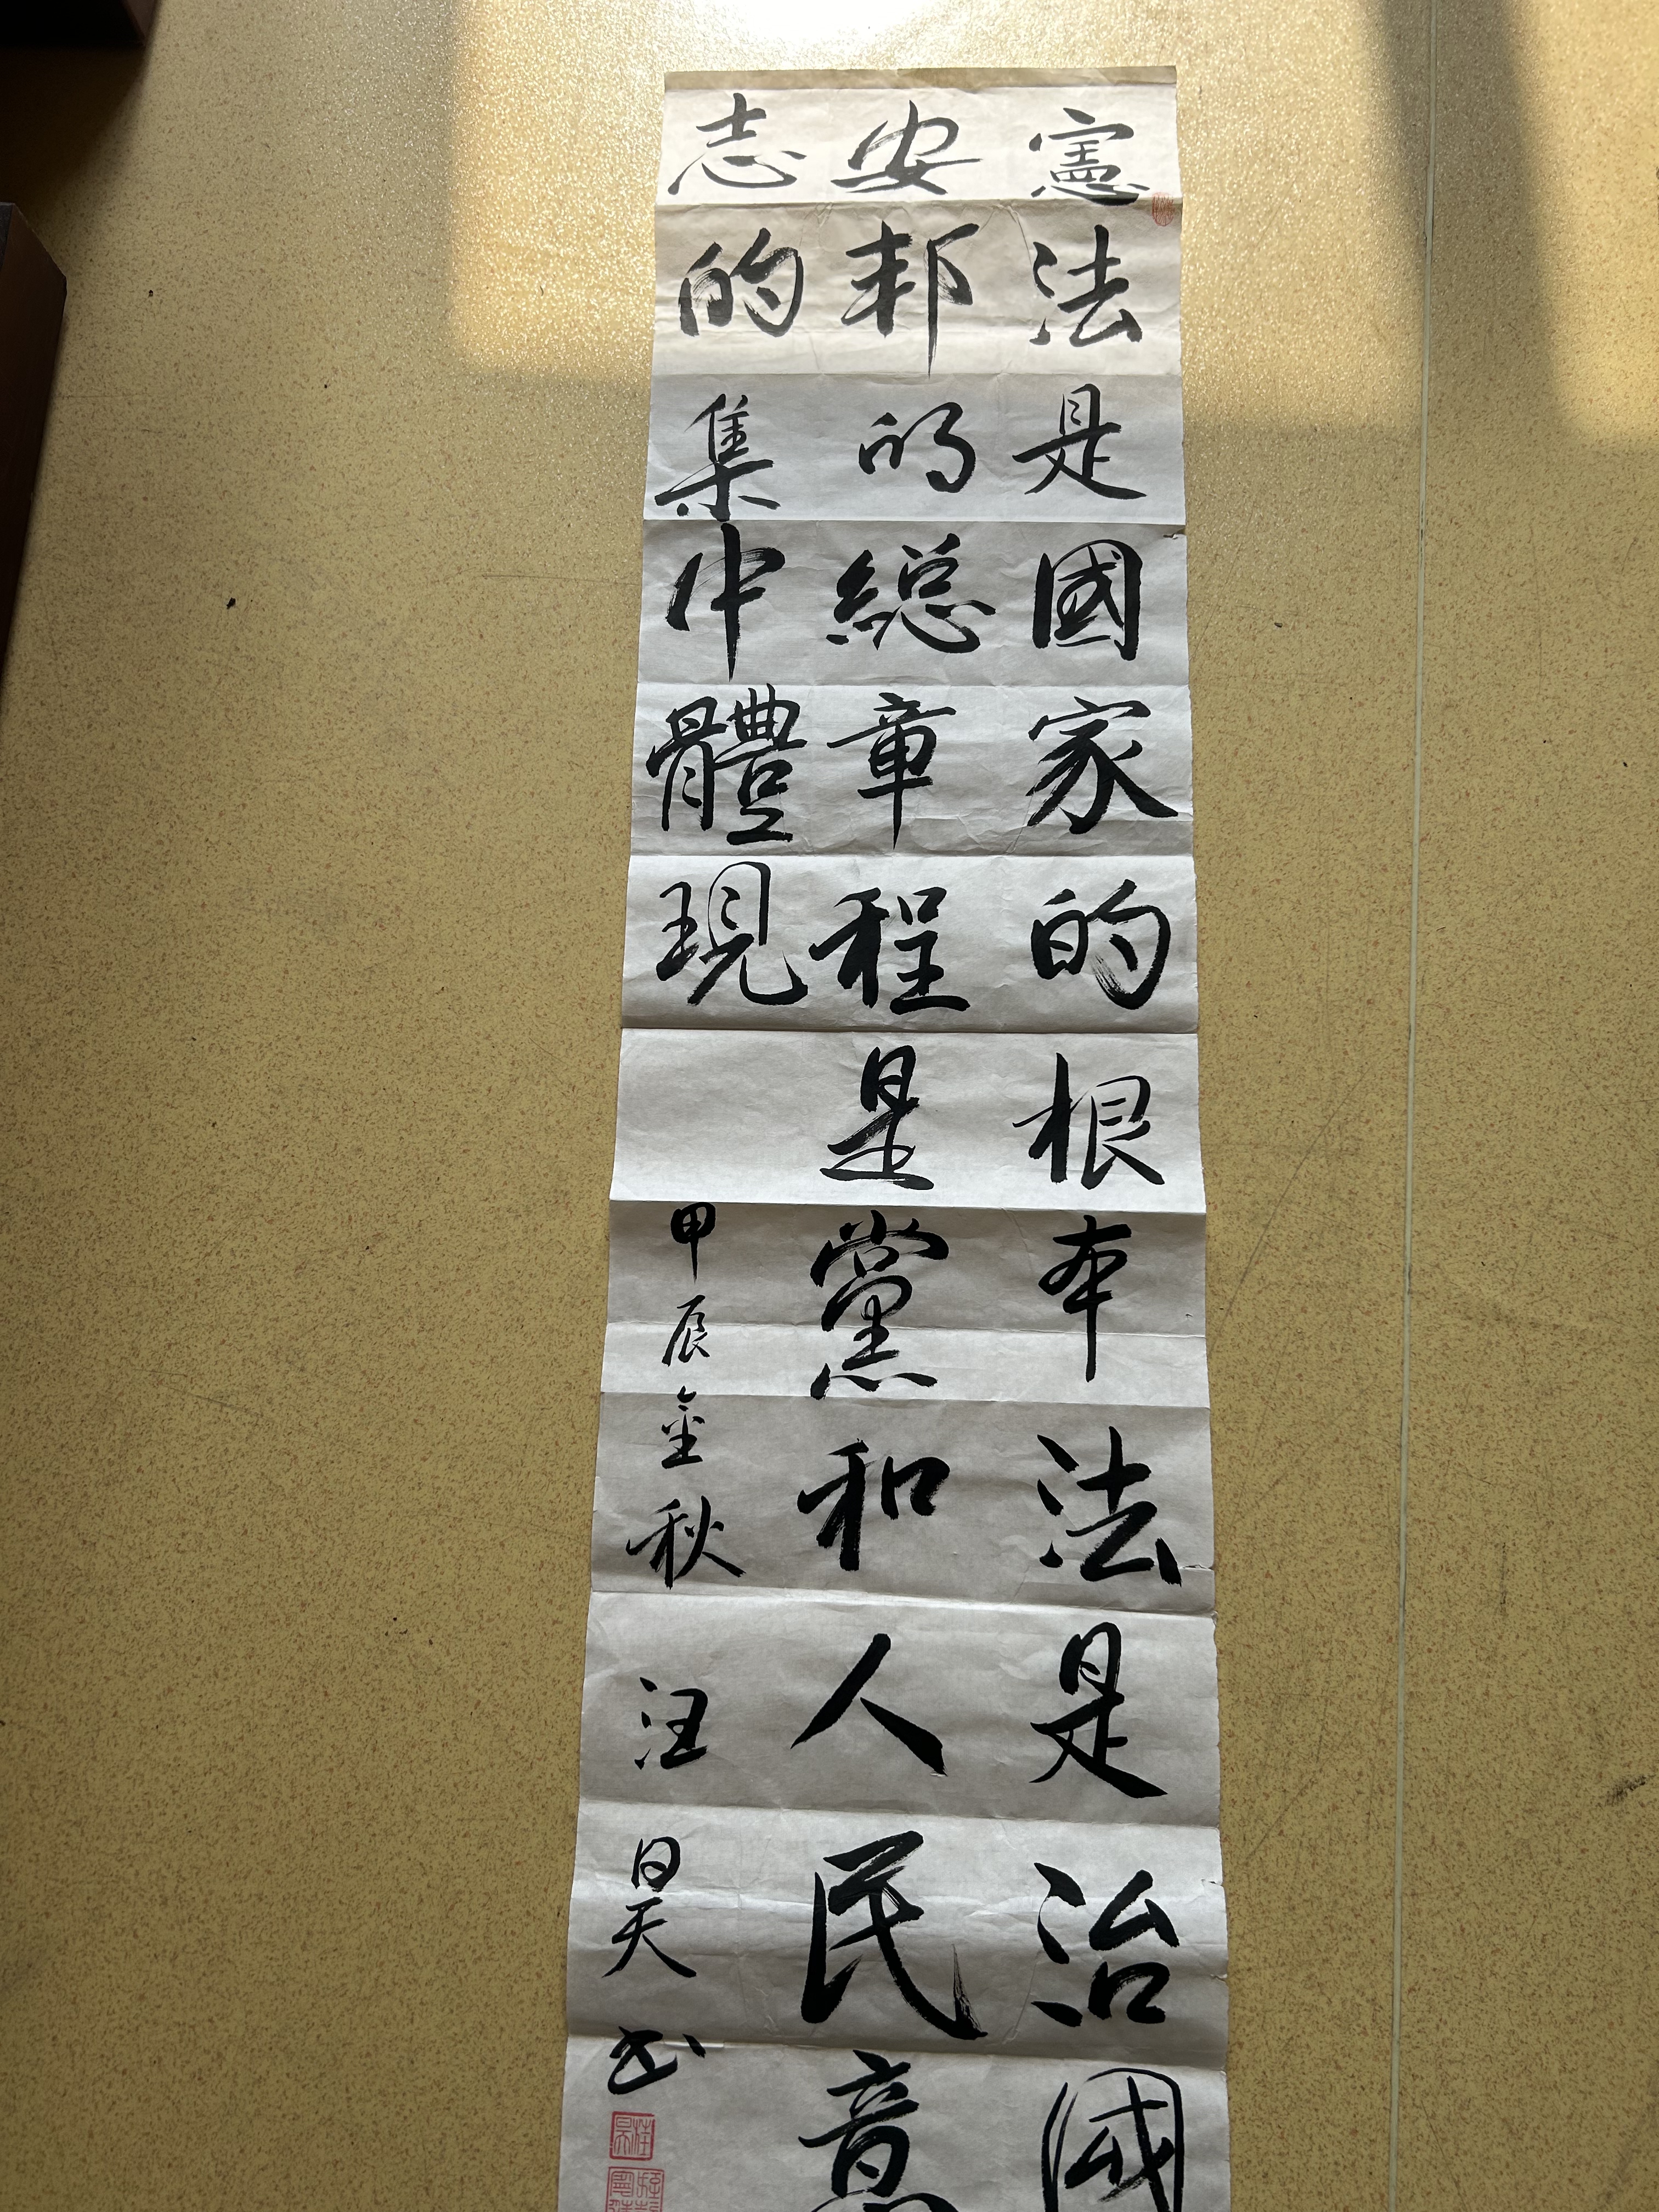 憲法是國家的根本法是治國
安邦的總章程是黨和人民意
志的集中體現
甲辰金秋 汪昊书